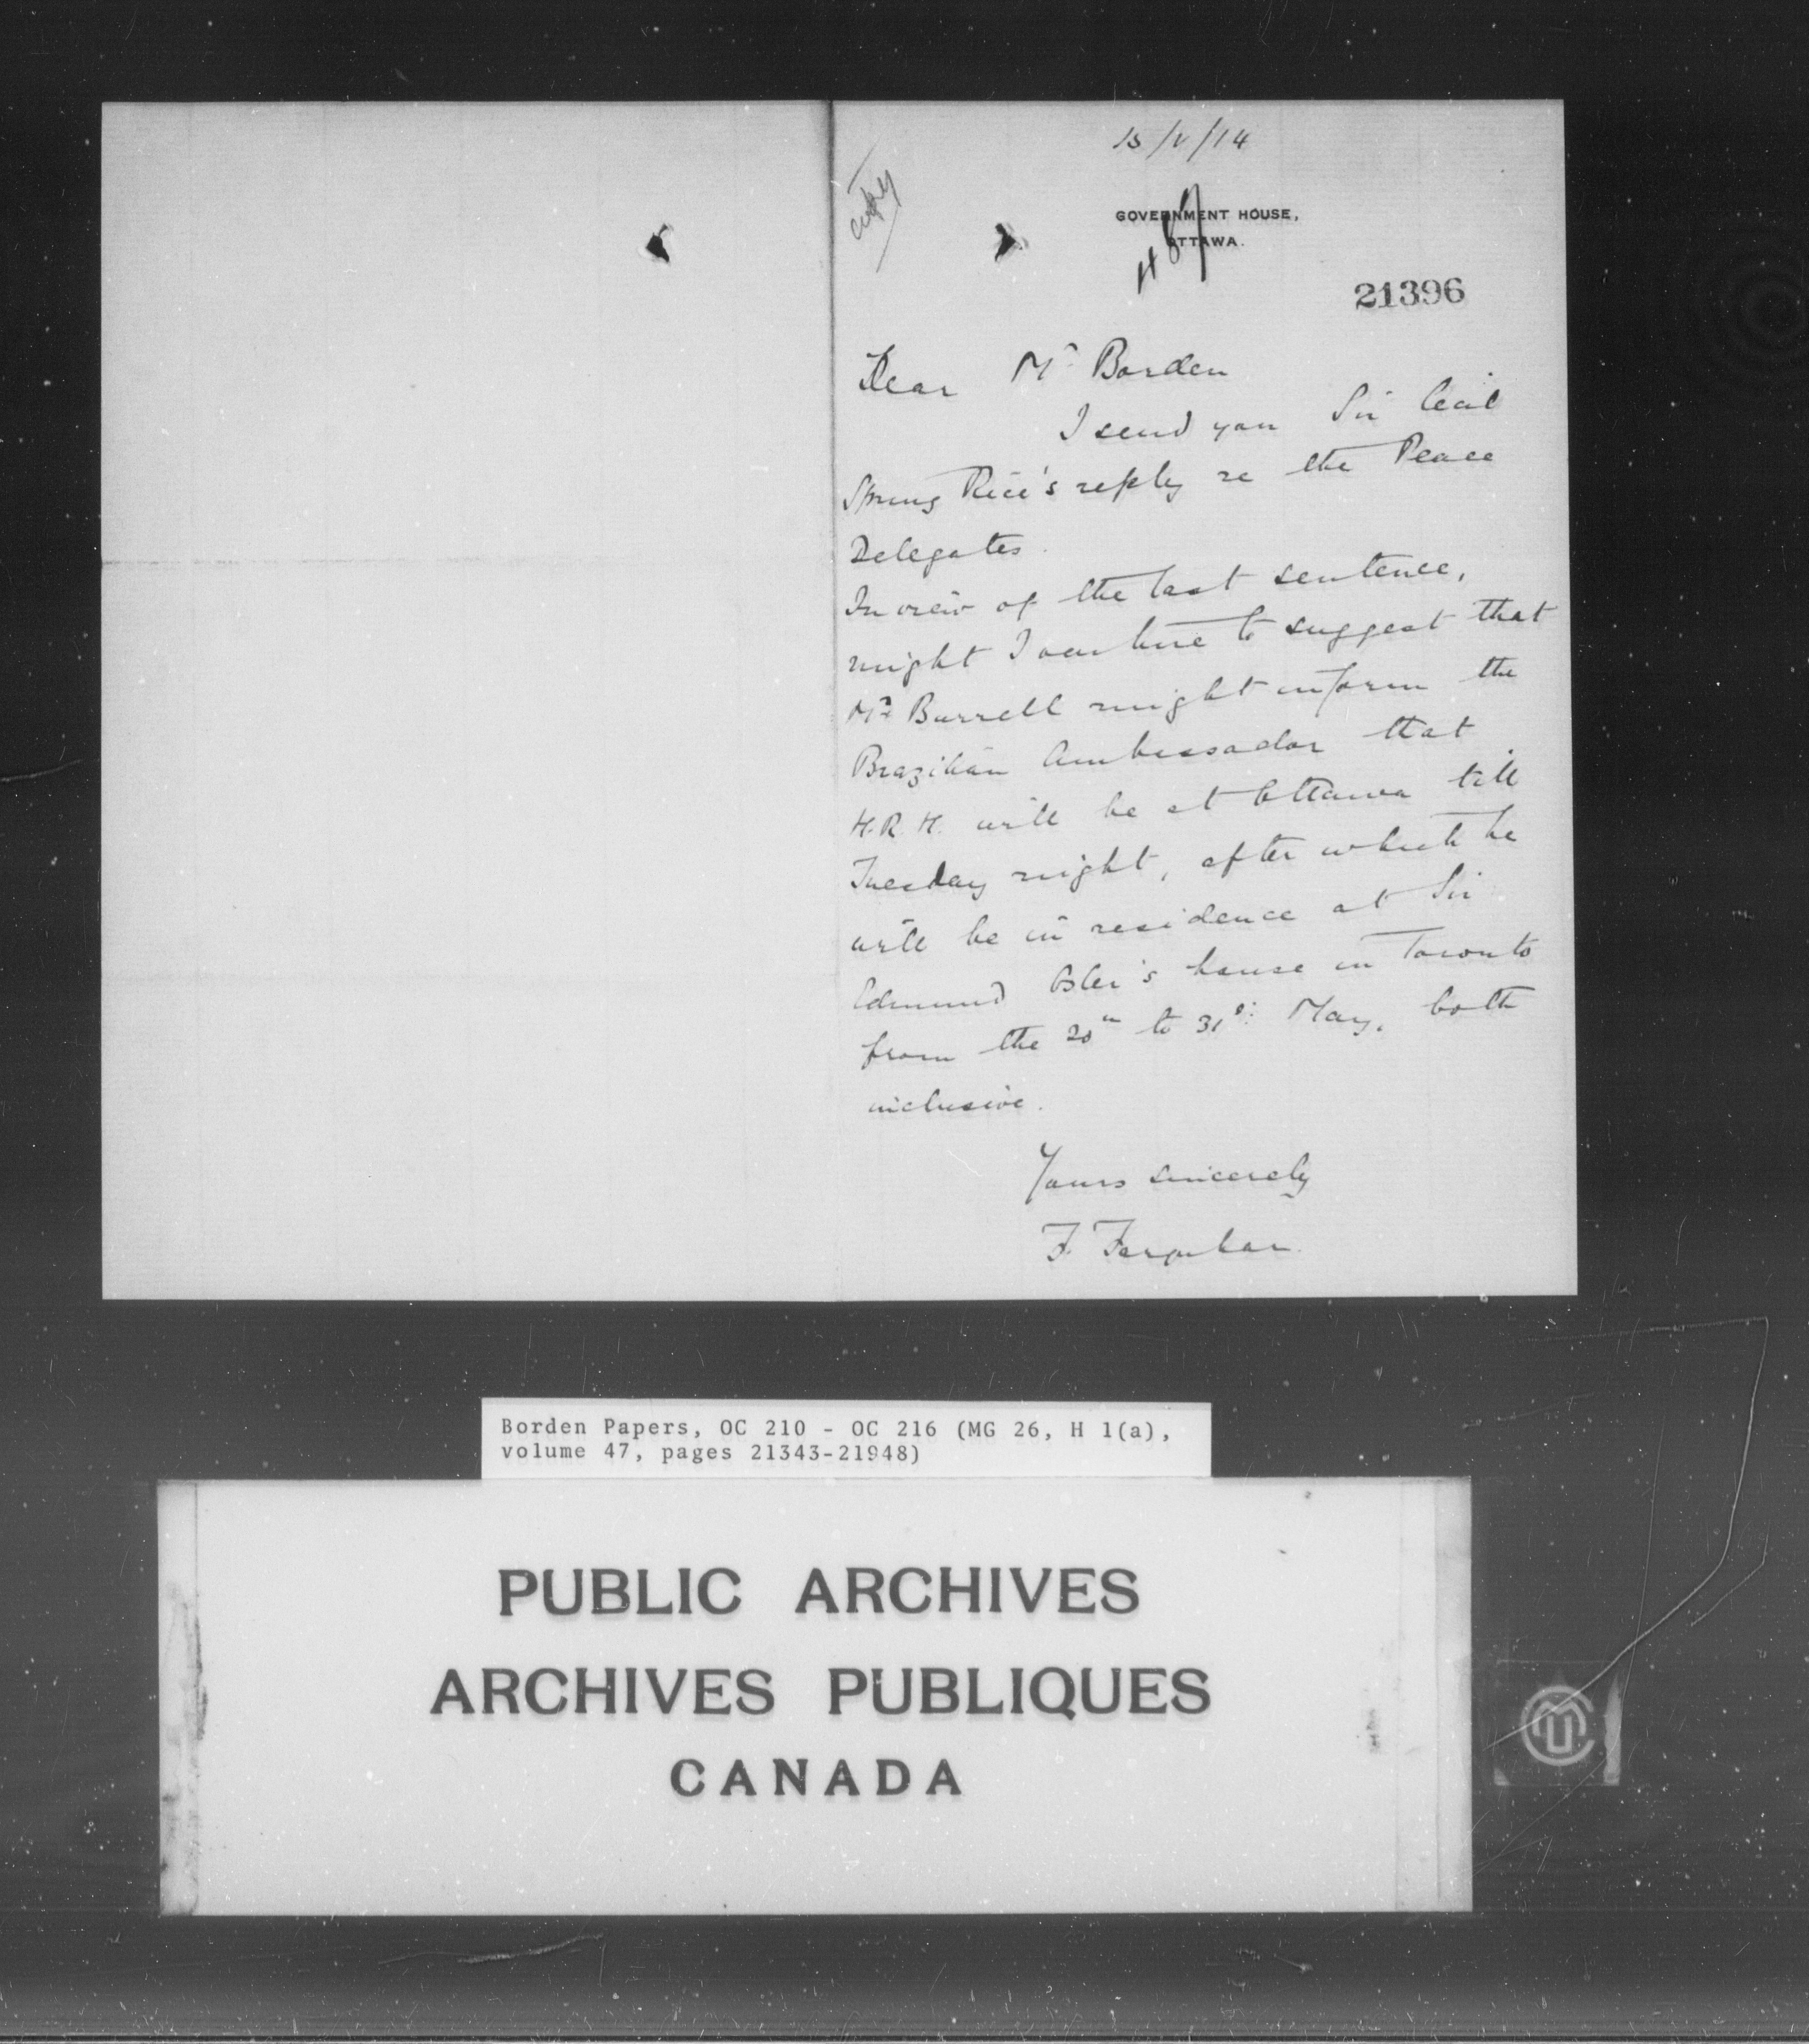 15/V/14
copy
GOVERNMENT HOUSE,
OTTAWA.
21396
Dear Mr Borden
I send you Sir Cecil
Spring Rice's reply re the Peace
Delegates.
In view of the last sentence,
might I venture to suggest that
Mr Burrell might inform the
Brazilian Ambassador that
H.R.H. will be at Ottawa till
Tuesday night, after which he
will be in residence at Sir
Edmund Osler's house in Toronto
from the 20th to 31st May, both
inclusive.
Yours sincerely
F. Farquhar.
Borden Papers, OC 210 - OC 216 (MG 26, H 1(a),
volume 47, pages 21343-21948)
PUBLIC ARCHIVES
ARCHIVES PUBLIQUES
CANADA